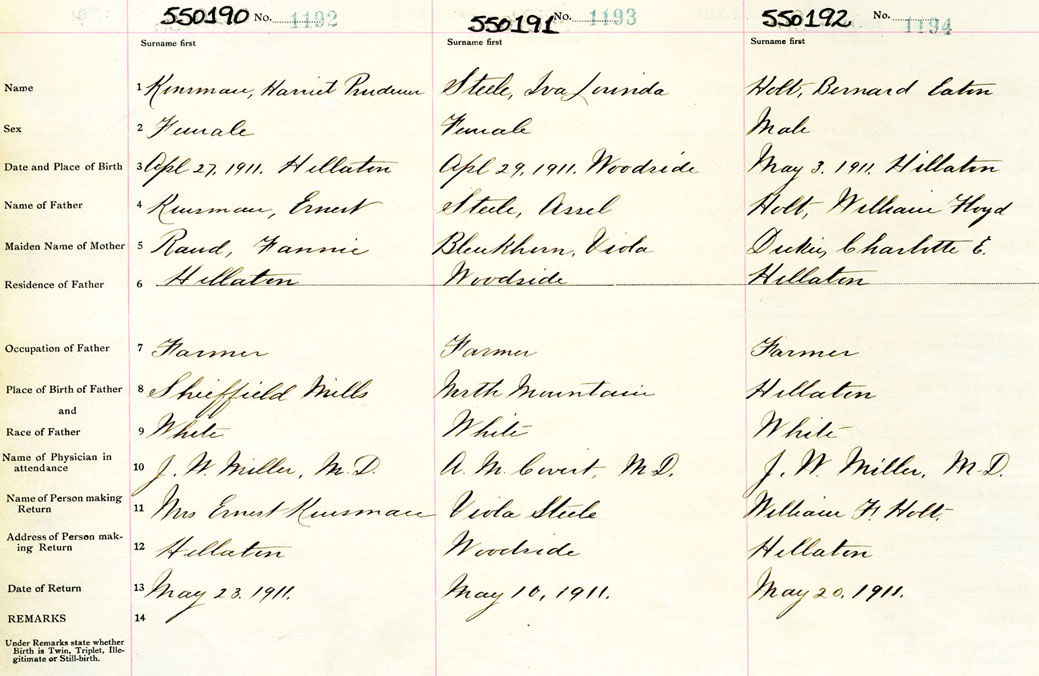 550190 No. 1192 550191 No. 1193 550192 No. 1194
Surname first Surname first Surname first
Name 1 Kinsman, Harriet Prudence Steele, Iva Lorinda Holt, Bernard Eaton
Sex 2 Female Female Male
Date and Place of Birth 3 Apl 27, 1911. Hillaton Apl 29, 1911. Woodside May 3. 1911. Hillaton
Name of Father 4 Kinsman, Ernest Steele, Assel Holt, William Floyd
Maiden Name of Mother 5 Rand, Fannie Viola Charlotte E.
Residence of Father 6 Hillaton Woodside Hillaton
Occupation of Father 7 Farmer Farmer Farmer
Place of Birth of Father 8 Shieffield Mills North Mountain Hillaton
and
Race of Father 9 White White White
Name of Physician in
attendance 10 J. W. Miller, M.D. A. M. Covert, M.D. J. W. Miller, M.D.
Name of Person making
Return 11 Mrs Ernest Kinsman Viola Steele William F. Holt.
Address of Person mak-
ing Return 12 Hillaton Woodside Hillaton
Date of Return 13 May 23. 1911. May 10, 1911. May 20. 1911.
REMARKS 14
Under Remarks state whether
Birth is Twin, Triplet, Ille-
gitimate or Still-birth.